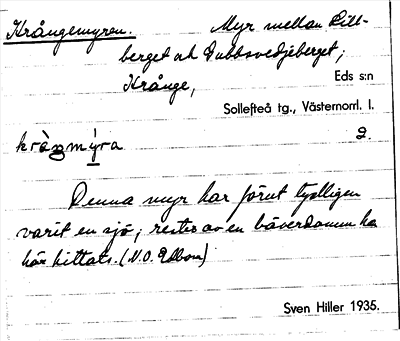 Krångemyren. Myr mellan Lill-
berget och Dubbsvedjeberget;
Krånge, Eds s:n
Sollefteå tg., Västernorrl. l.
kràŋmýra 2.
Denna myr har förut tydligen
varit en sjö; rester av en bäverdamm ha
här hittats. (N.O. Edbom)
Sven Hiller 1935.